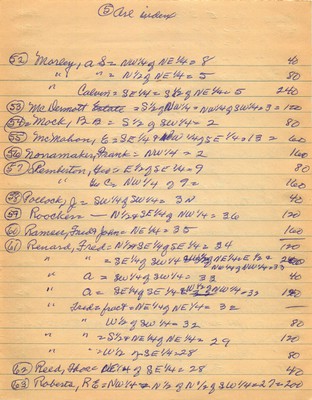 ⑤ Are index
52 Morley, A S = NW¼ of NE¼ = 8 40
" " " = N½ of NE¼ = 5 80
" Calvin = SE¼ = S½ of NE¼ = 5 240
53 McDermott Estate = S½ of NW¼ = NW¼ of SW¼ = 3 = 120
54 Mock, B B = S½ of SW¼ = 2 80
55 McMahon, E = SE¼ of SE¼ = 13 = 60
56 Nonamaker, Frank = NW¼ = 2 160
57 Pemberton, Geo = E½ of SE¼ = 9 80
" Geo C = NW¼ of 9 = 160
58 Pollock, J = SW¼ of SW¼ = 34 40
59 = N½ of SE¼ of NW¼ = 36 120
60 Ramser, Fred & John = NE¼ = 35 160
61 Renard, Fred = N½ of SE¼ of SE¼ = 34 120
" " = SE¼ of SW¼ NW¼ of NW¼ = 33 200
" A = SW¼ of SW¼ = 33 40
" A = SE¼ of SE¼ = = 33
" Fred = fract = NE¼ of NE¼ = 32 —
" W½ of SW¼ = 32 80
" " = S½ of NE¼ of NE¼ = 29 120
" " = W½ of SE¼ = 28 80
62 Reed, = NE¼ of SE¼ = 28 40
63 Roberts, R E = NW¼ = N½ of N½ of SW¼ = 27 = 200